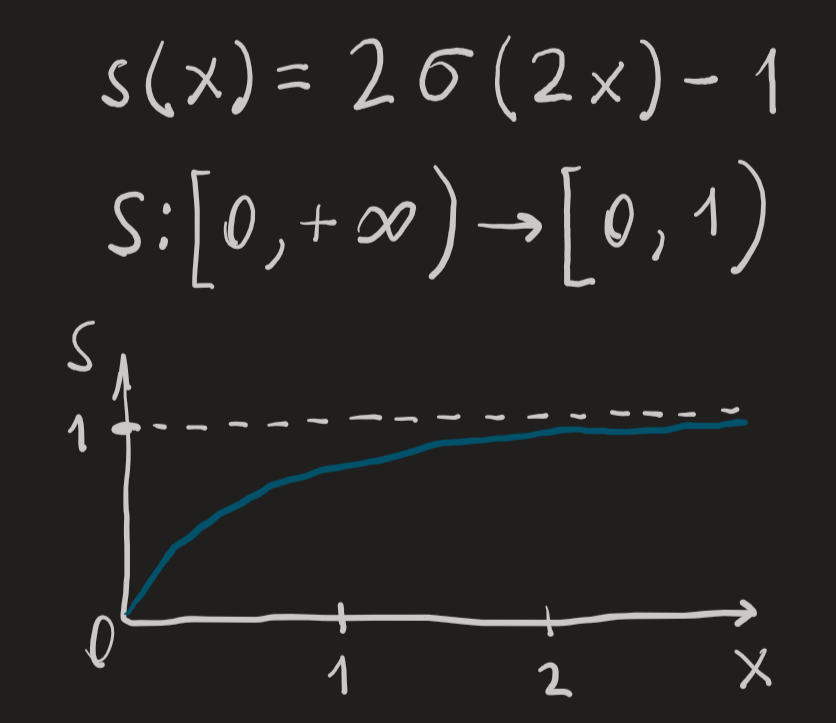 s(x) = 2σ(2x) - 1
S: [0, +∞) → [0, 1)
S
1
0
1
2
x